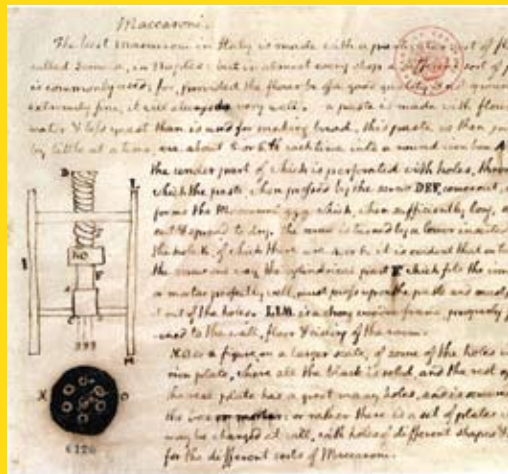 Maccaroni.
The best maccaroni in Italy is made with a particular sort of fl
called Semola, in Naples: but in almost every shop a different sort of
is commonly used; for, provided the flour be of a good quality, and not ground
extremely fine, it will always do very well. a paste is made with flour,
water & less yeast than is used for making bread. this paste is then pu
by little at a time, viz. about 5. or 6. ℔ each time into a round iron box A
the under part of which is perforated with holes, throu
which the paste, when pressed by the screw DEF, comes out, a
forms the Maccaroni g.g.g. which, when sufficiently long, a
cut & spread to dry. the screw is turned by a lever inserted
the hole K. of which there are 4. or 6. it is evident that on tu
the screw one way, the cylindrical part F. which fits the iron
or mortar perfectly well, must press upon the paste and must
it out of the holes. LLM. is a strong wooden frame, properly
ened to the wall, floor & cieling of the room.
N.O. is a figure, on a larger scale, of some of the holes in
iron plate, where all the black is solid, and the rest op
the real plate has a great many holes, and is screwed
the box or mortar: or rather there is a set of plates w
may be changed at will, with holes of different shapes &
for the different sorts of Maccaroni.
D
L
K
F
M
N
O
6126